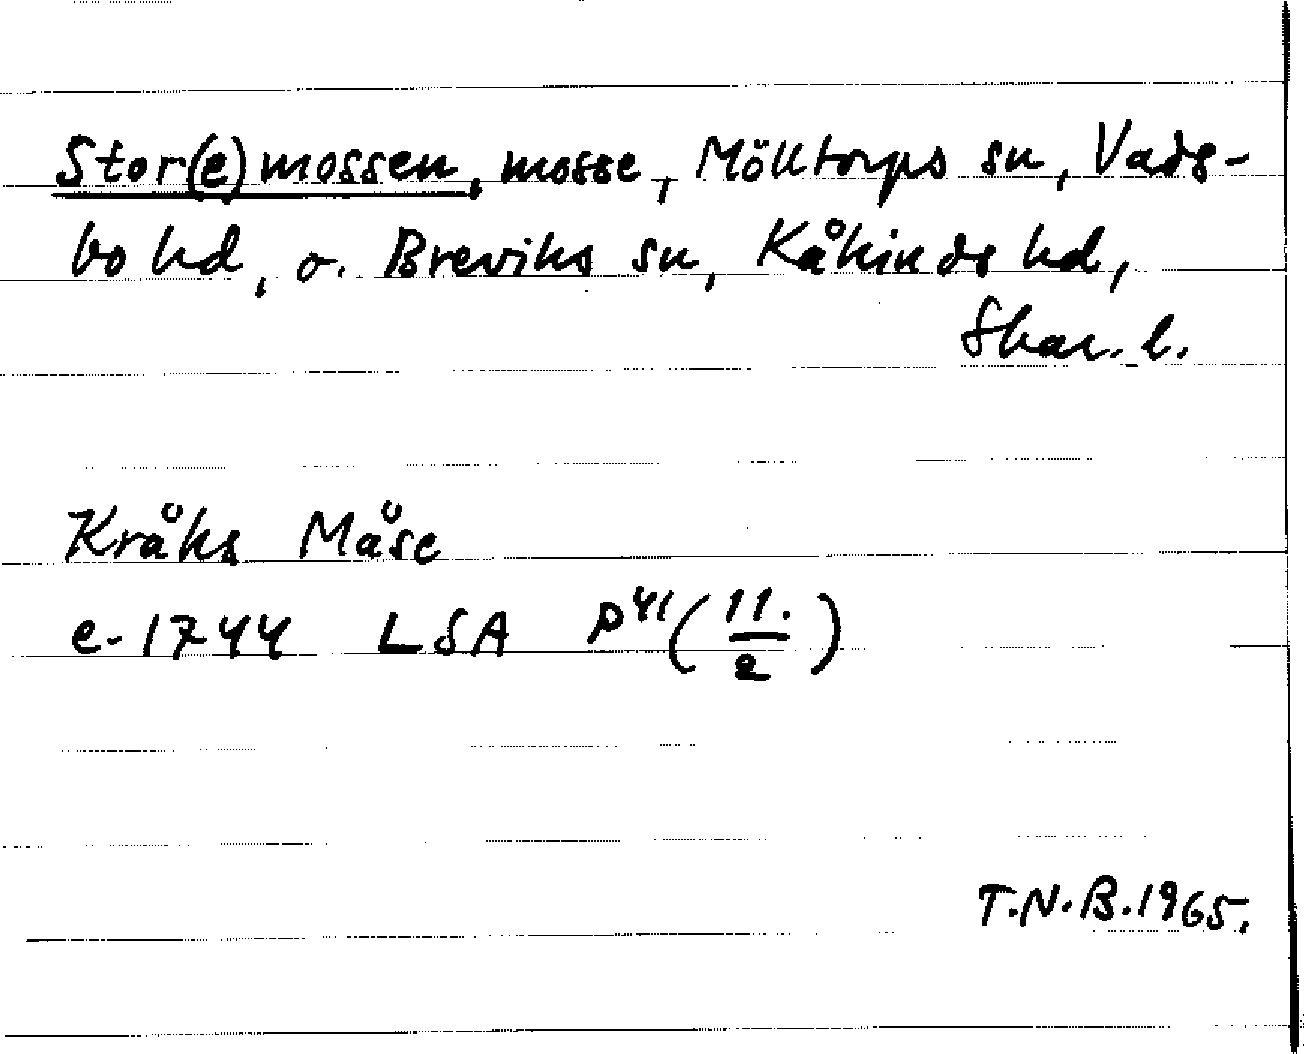 Stor(e)mossen, mosse, Mölltorps sn, Vads-
bo hd, o. Breviks sn, Kåkinds hd,
Skar. l.
Kråks Måse
e. 1744 LSA P41 (11./2)
T.N.B. 1965.